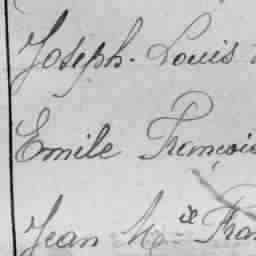 Joseph. Louis
Emile François
Jean M^ie Fran